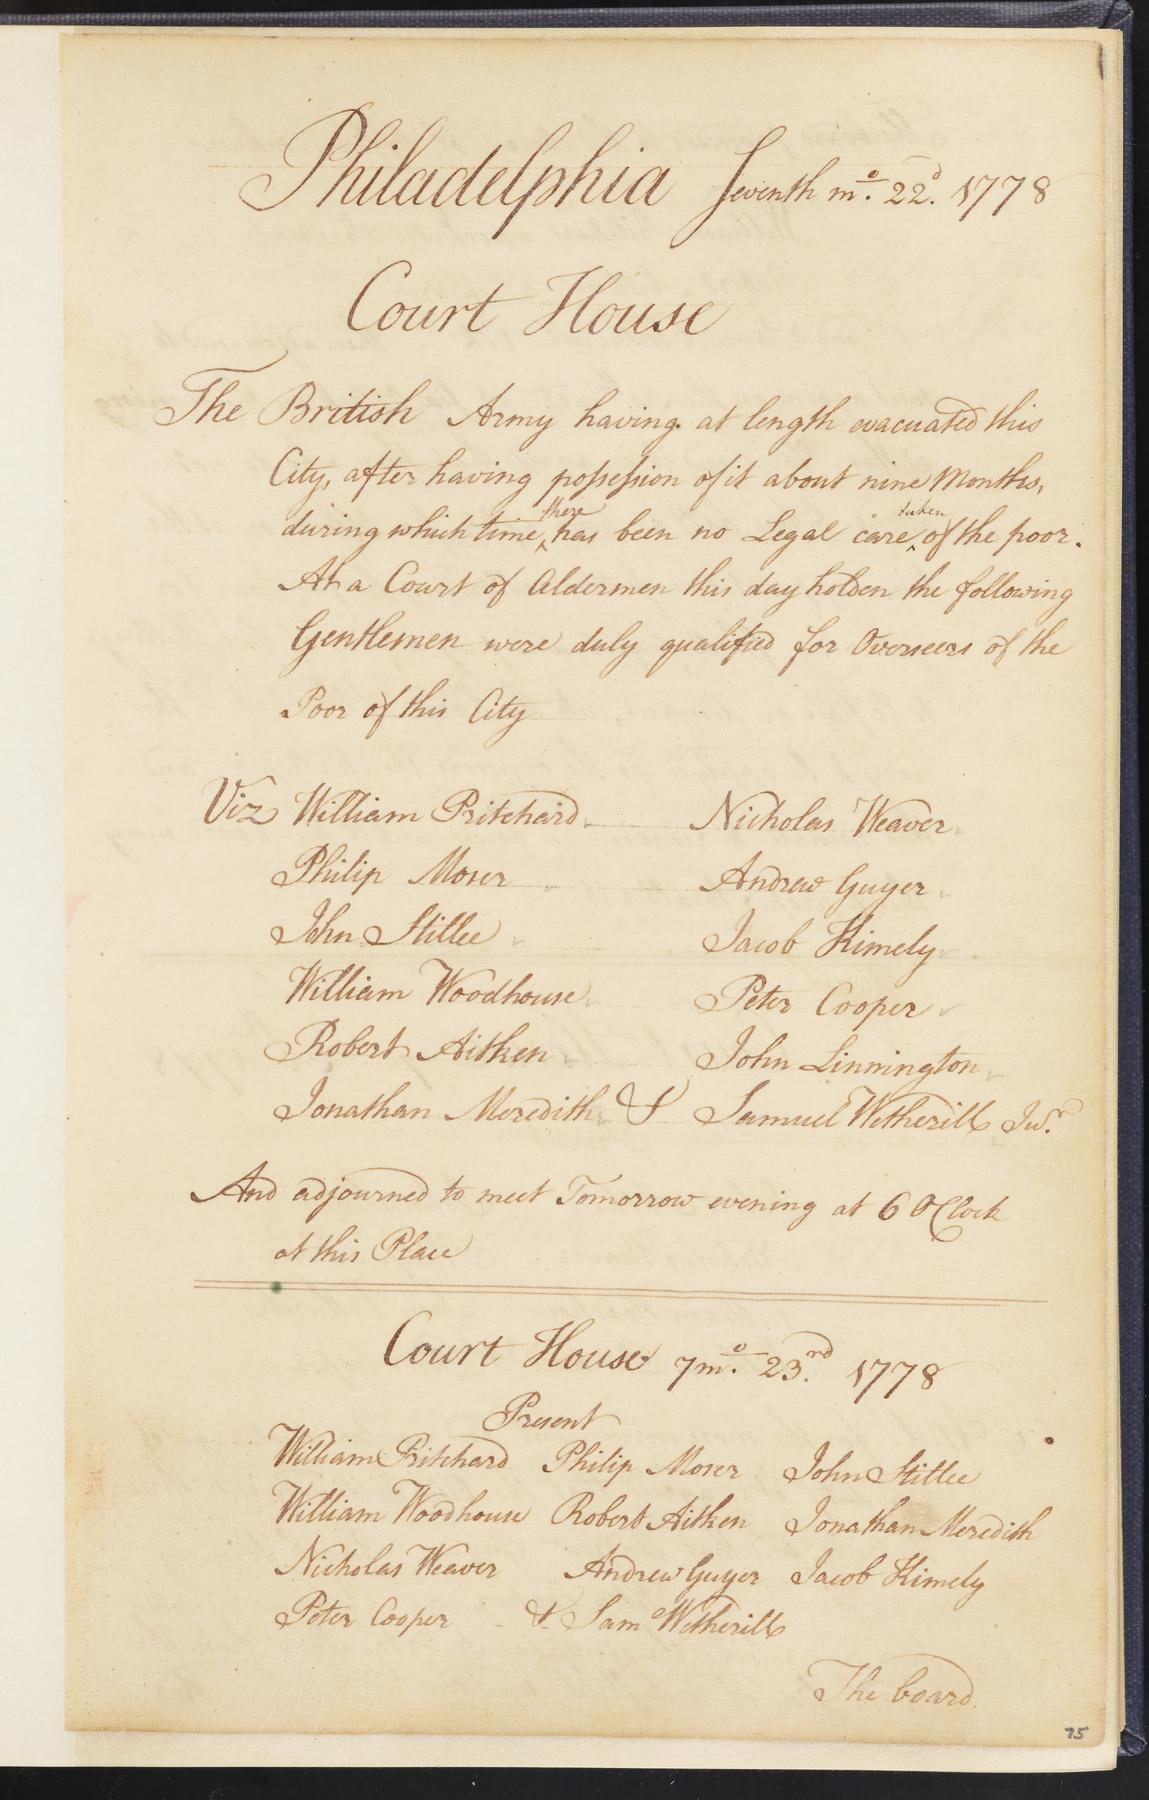 Philadelphia Seventh mo. 22d. 1778
Court House
The British Army having at length evacuated this
City, after having possession of it about nine Months,
during which time there has been no Legal care taken of the poor.
At a Court of Aldermen this day holden the following
Gentlemen were duly qualified for Overseers of the
Poor of this City
Viz William Pritchard Nicholas Weaver
Philip Moser Andrew Guyer
John Stillee Jacob Kimely
William Woodhouse Peter Cooper
Robert Aitken John Linnington
Jonathan Meredith & Samuel Wetherill Junr
And adjourned to meet Tomorrow evening at 6 OClock
at this Place
Court House 7mo. 23rd. 1778
Present
William Pritchard Philip Moser John Stillee
William Woodhouse Robert Aitken Jonathan Meredith
Nicholas Weaver Andrew Guyer Jacob Kimely
Peter Cooper - & Sam Wetherill
The board
75